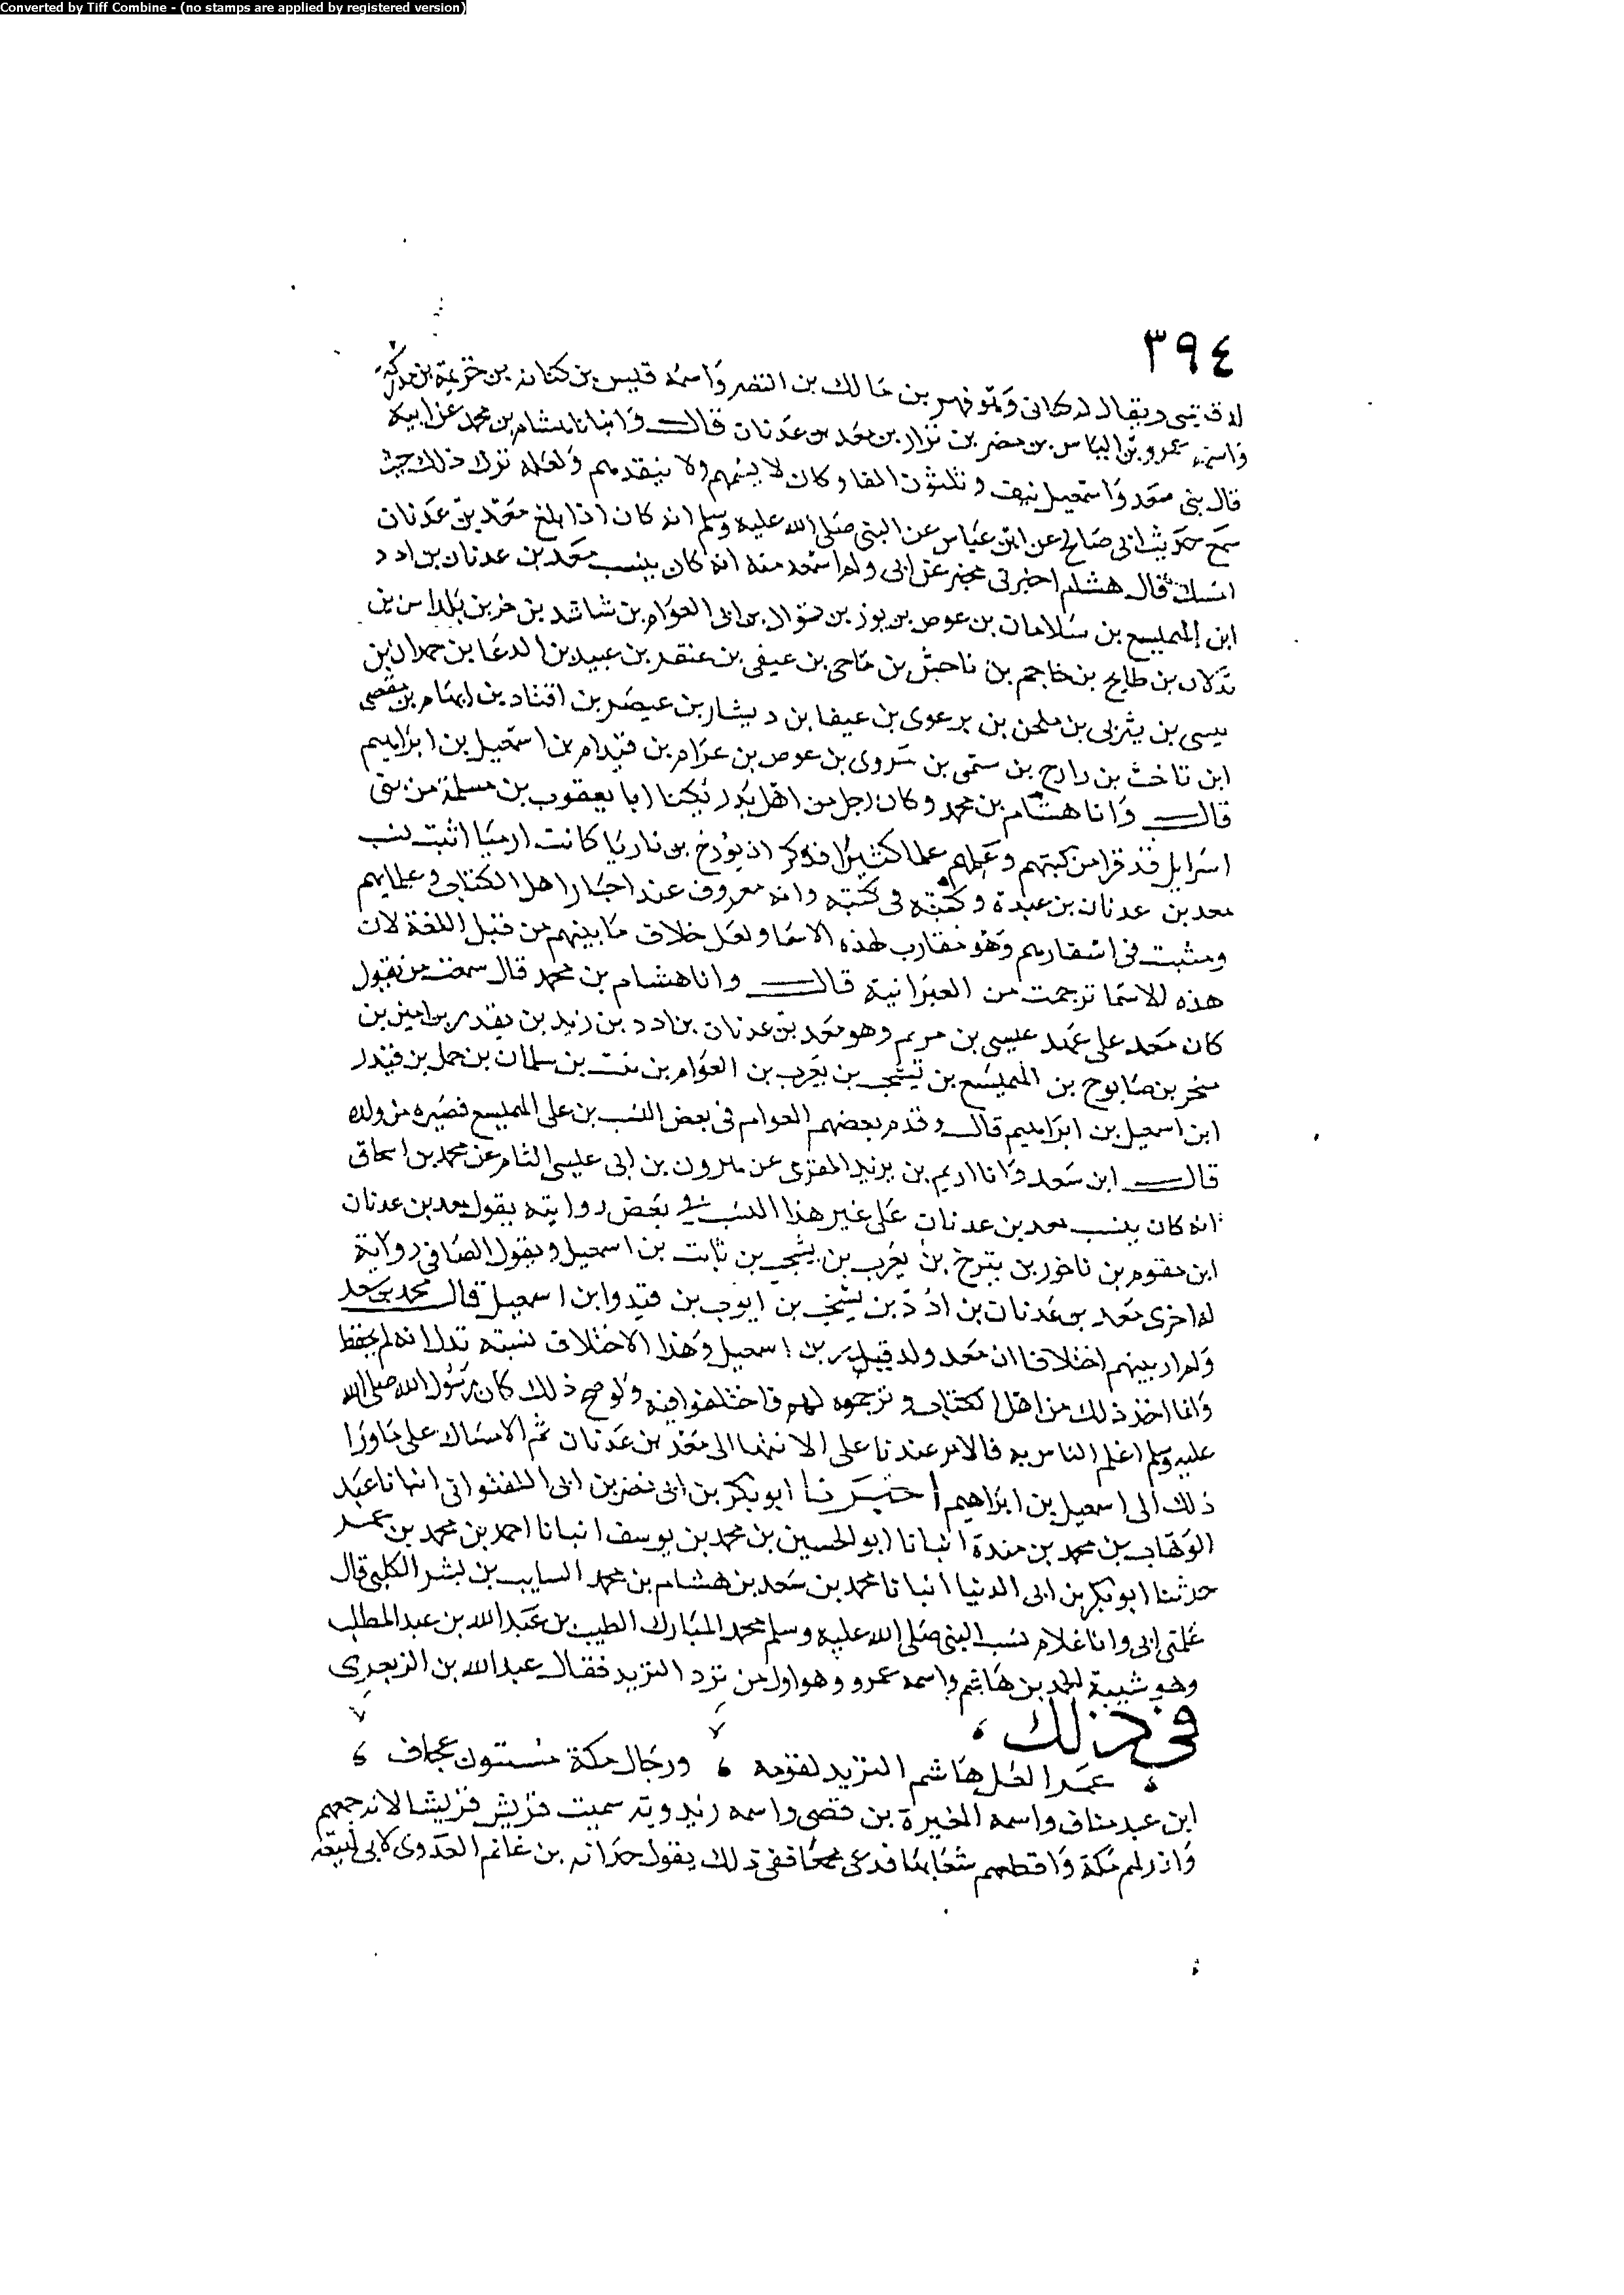 Converted by Tiff Combine - (no stamps are applied by registered version)
٣٩٤
له قرشي ويقال له كناني وهو فهر بن مالك بن النضر واسمه قيس بن كنانه بن خزيمة بن مدركه
واسمه عمرو بن الياس بن مضر بن نزار بن معد بن عدنان قال وانبانا هشام بن محمد عن ابيه
قال بين معد واسمعيل نيف وثلثون ابا وكان لا يسميهم ولا ينفدهم ولعله ترك ذلك حيث
سمع حديث ابي صالح عن ابن عباس عن النبي صلى الله عليه وسلم انه كان اذا بلغ معد بن عدنان
امسك قال هشام اخبرني مخبر عن ابي ولم اسمعه منه انه كان ينسب معد بن عدنان بن ادد
ابن الهميسع بن سلامان بن عوص بن يوز بن قوال بن ابي العوام بن ناشد بن حز بن بلداس بن
تدلان بن طابخ بن جاجم بن ناحش بن ماحي بن عيفي بن عبقر بن عبيد بن الدعا بن حمدان بن
يسبي بن يثربي بن ملحن بن يرعوي بن عيفا بن ديشار بن عيصر بن اقناد بن ابهام بن مقصي
ابن ناخث بن رازح بن سمي بن مزوي بن عوص بن عرام بن قيدام بن اسمعيل بن ابراهيم
قال وانا هشام بن محمد وكان رجل من اهل تدمر يكنا ابا يعقوب بن مسلمة من بني
اسرايل قد قرا من كتبهم وعلمهم علما كثيرا فذكر ان يورخ بن ناريا كاتب ارميا اثبت نسب
معد بن عدنان بن عبدة وكتبه في كتبه وانه معروف عند احبار اهل الكتاب وعلمايهم
ومثبت في اسفارهم وهو مقارب لهذه الاسما ولعل خلاف ما بينهم من قبل اللغة لان
هذه الاسما ترجمت من العبرانية قال وانا هشام بن محمد قال سمعت من يقول
كان معد على عهد عيسى بن مريم وهو معد بن عدنان بن ادد بن زيد بن يقدر بن امين بن
منحر بن صابوح بن الهميسع بن يشجب بن يعرب بن العوام بن نبت بن سلمان بن حمل بن قيدر
ابن اسمعيل بن ابراهيم قال وقدم بعضهم العوام في بعض النسب بن على الهميسع فصيره من ولده
قال ابن سعد وانا اديم بن يزيد المقري عن هرون بن ابي عيسى الشام عن محمد بن اسحاق
انه كان ينسب معد بن عدنان على غير هذا النسب في بعض روايته يقول معد بن عدنان
ابن مقوم بن ناخور بن يترح بن يعرب بن يشجب بن ثابت بن اسمعيل ويقول ايضا في رواية
له اخرى معد بن عدنان بن ادد بن يشجب بن ايوب بن قيدوا بن اسمعيل قال محمد بن سعد
ولم ار بينهم اختلافا ان معد ولد قيدر بن اسمعيل وهذا الاختلاف نسبته تدل انه لم يحفظ
وانما اخذ ذلك من اهل الكتاب وترجموه لهم فاختلفوا فيه ولو صح ذلك كان رسول الله صلى الله
عليه وسلم اعلم الناس به فالامر عندنا على الانتها الى معد بن عدنان ثم الامساك على ما ورا
ذلك الى اسمعيل بن ابراهيم اخبرنا ابو بكر بن ابي نصر بن ابي اللفتواني انبانا عبد
الوهاب بن محمد بن مندة انبانا ابو الحسين بن محمد بن يوسف انبانا احمد بن محمد بن عمر
حدثنا ابو بكر بن ابي الدنيا انبانا محمد بن سعد بن هشام بن محمد السايب بن بشر الكلبي قال
علمني ابي وانا غلام نسب النبي صلى الله عليه وسلم محمد المبارك الطيب بن عبد الله بن عبد المطلب
وهو شيبة الحمد بن هاشم واسمه عمرو وهو اول من ثرد الثريد فقال عبد الله بن الزبعري
في ذلك
عمرا لعل هاشم الثريد لقومه ورجال مكة مسنتون عجاف
ابن عبد مناف واسمه المغيرة بن قصي واسمه زيد وبه سميت قريش قريشا لانه جمعهم
وانزلهم مكة واقطعهم شعابها فدعي مجمعا ففي ذلك يقول حذافه بن غانم العدوي لابي لهب